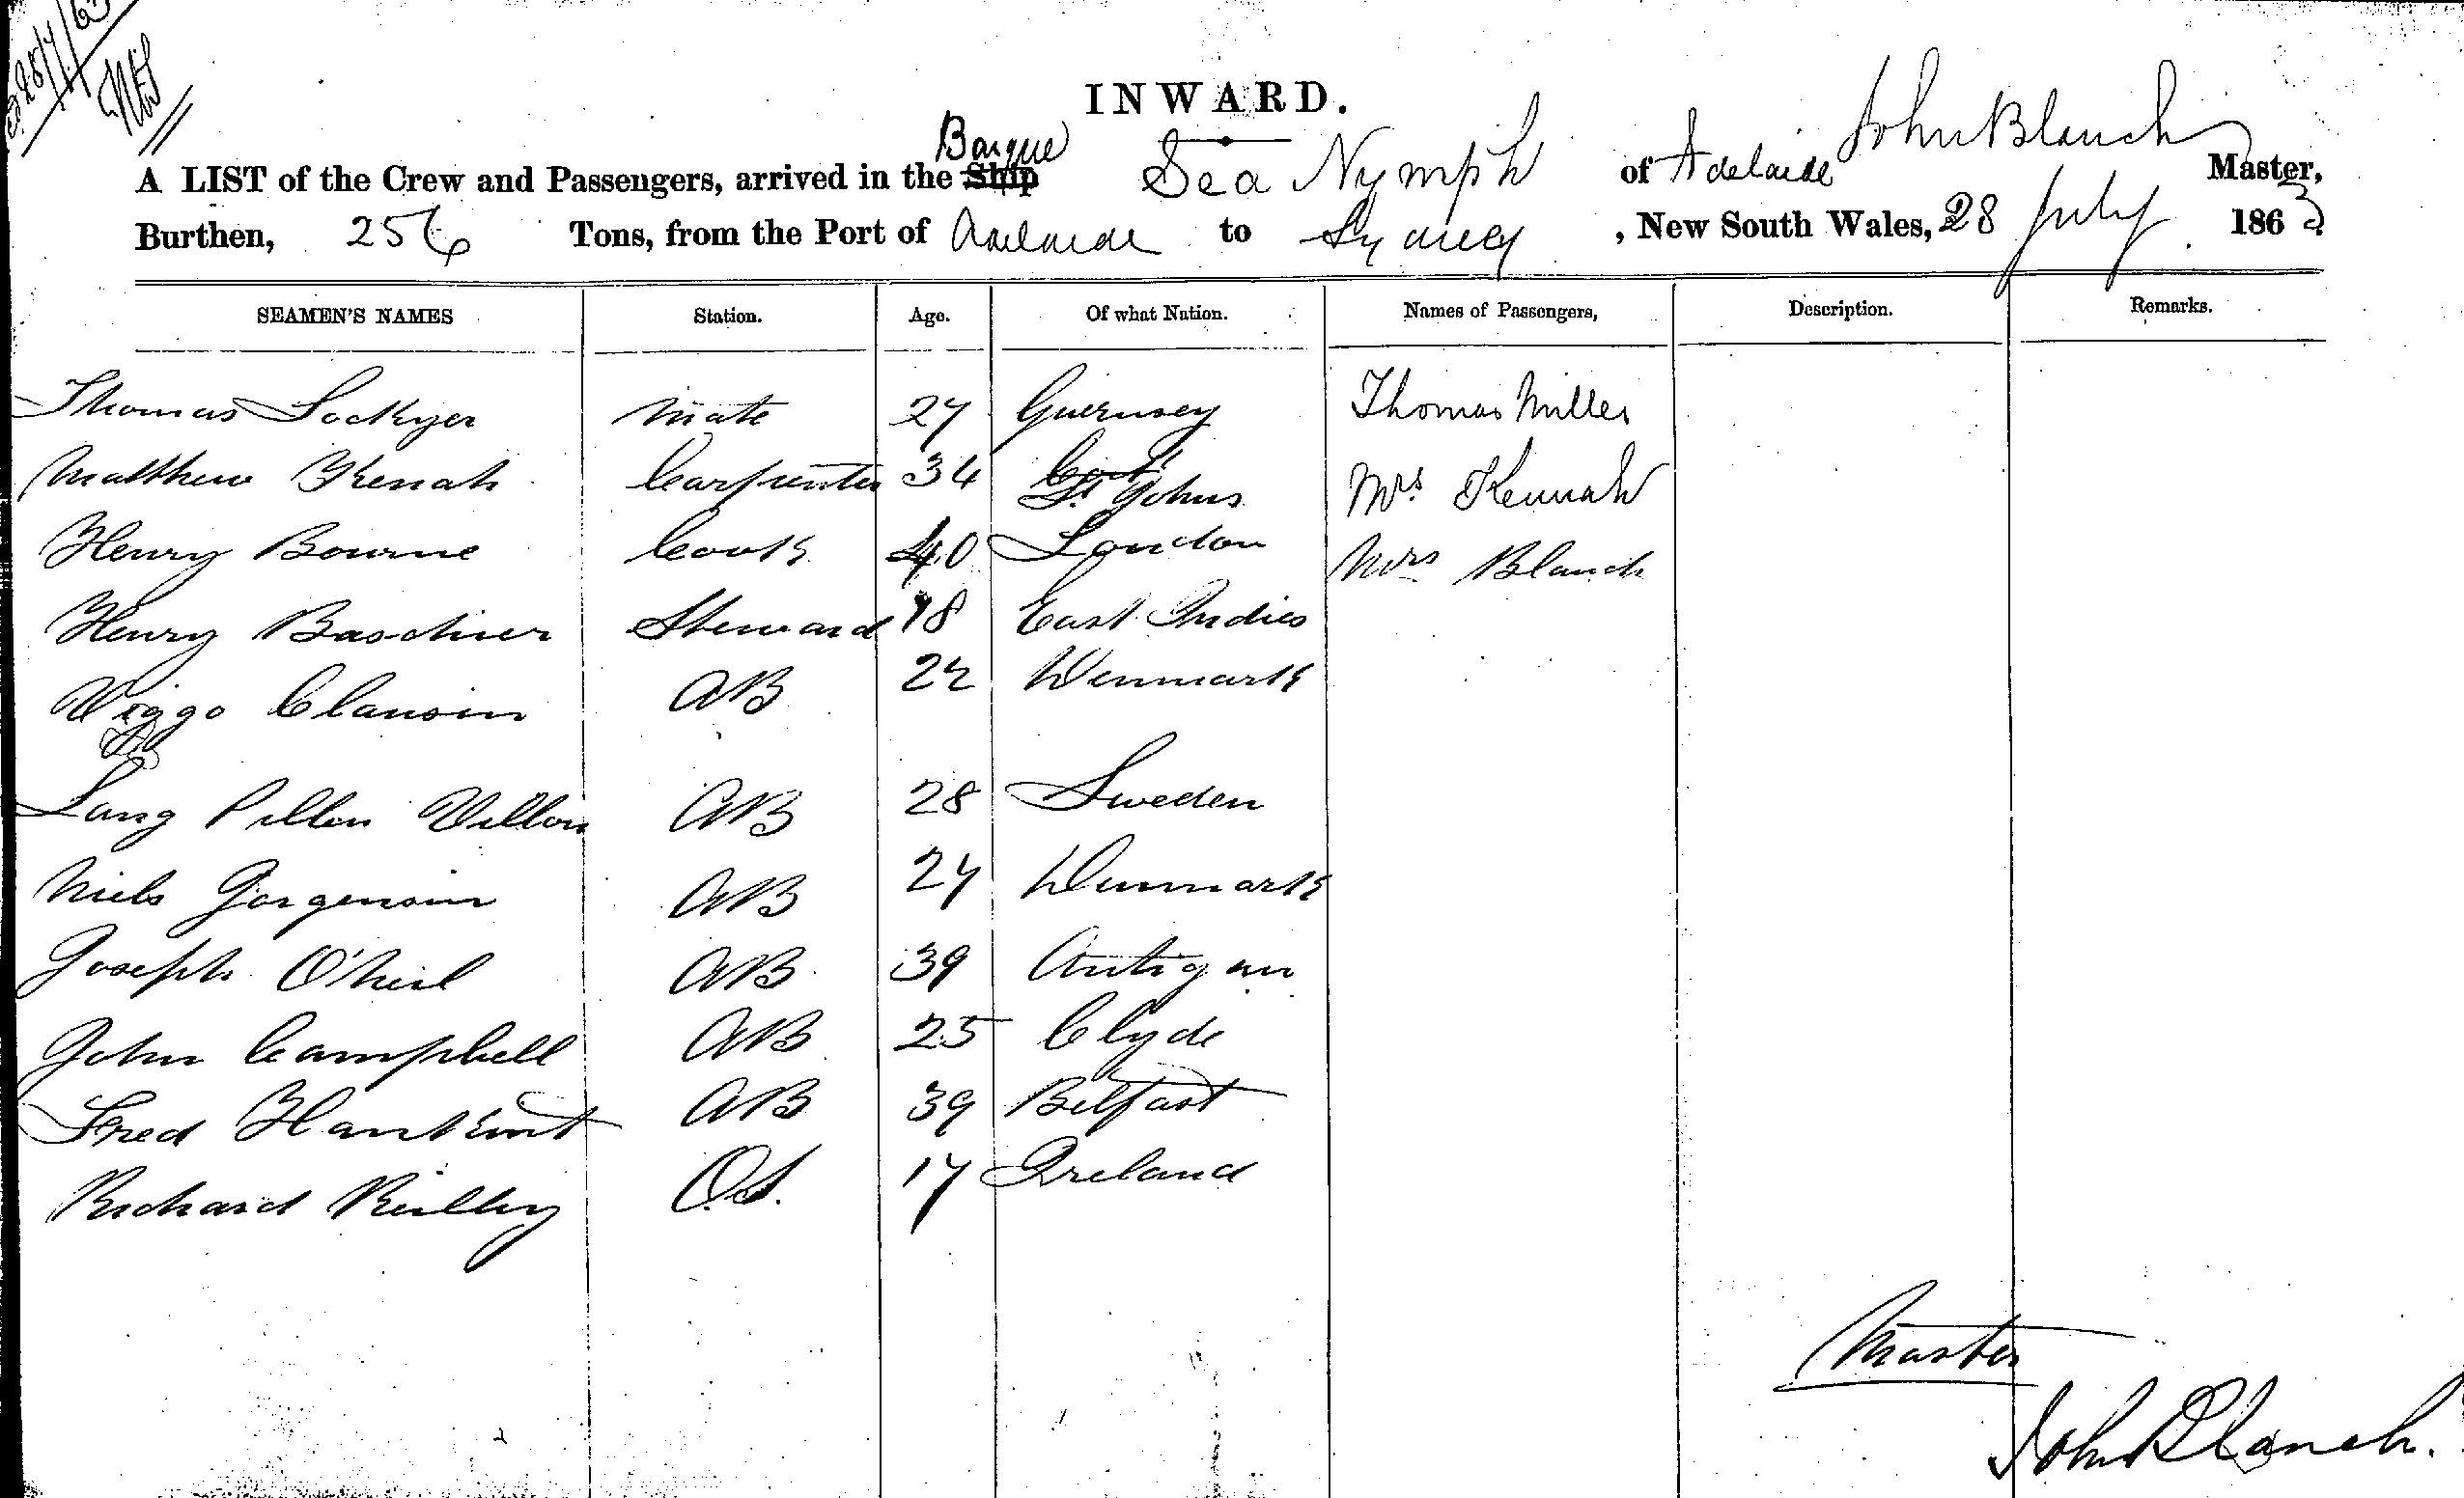 28/7/63
INWARD.
A LIST of the Crew and Passengers, arrived in the Ship Barque Sea Nymph of Adelaide John Blanch Master,
Burthen, 256 Tons, from the Port of Adelaide to Sydney, New South Wales, 28 July 1863
SEAMEN'S NAMES Station. Age. Of what Nation. Names of Passengers, Description. Remarks.
Thomas Lockyer Mate 27 Guernsey Thomas Miller
Matthew Kenah Carpenter 34 St Johns Mrs Kennah
Henry Bourne Cook 40 London Mrs Blanch
Henry Steward 18 East Indies
Viggo Clausin AB 22 Denmark
Lang AB 28 Sweden
Niels Jorgensin AB 27 Denmark
Joseph O'Neil AB 39 Antigau
John Campbell AB 25 Clyde
Fred AB 39 Belfast
Richard Reilley O.S. 17 Ireland
Master
John Blanch.